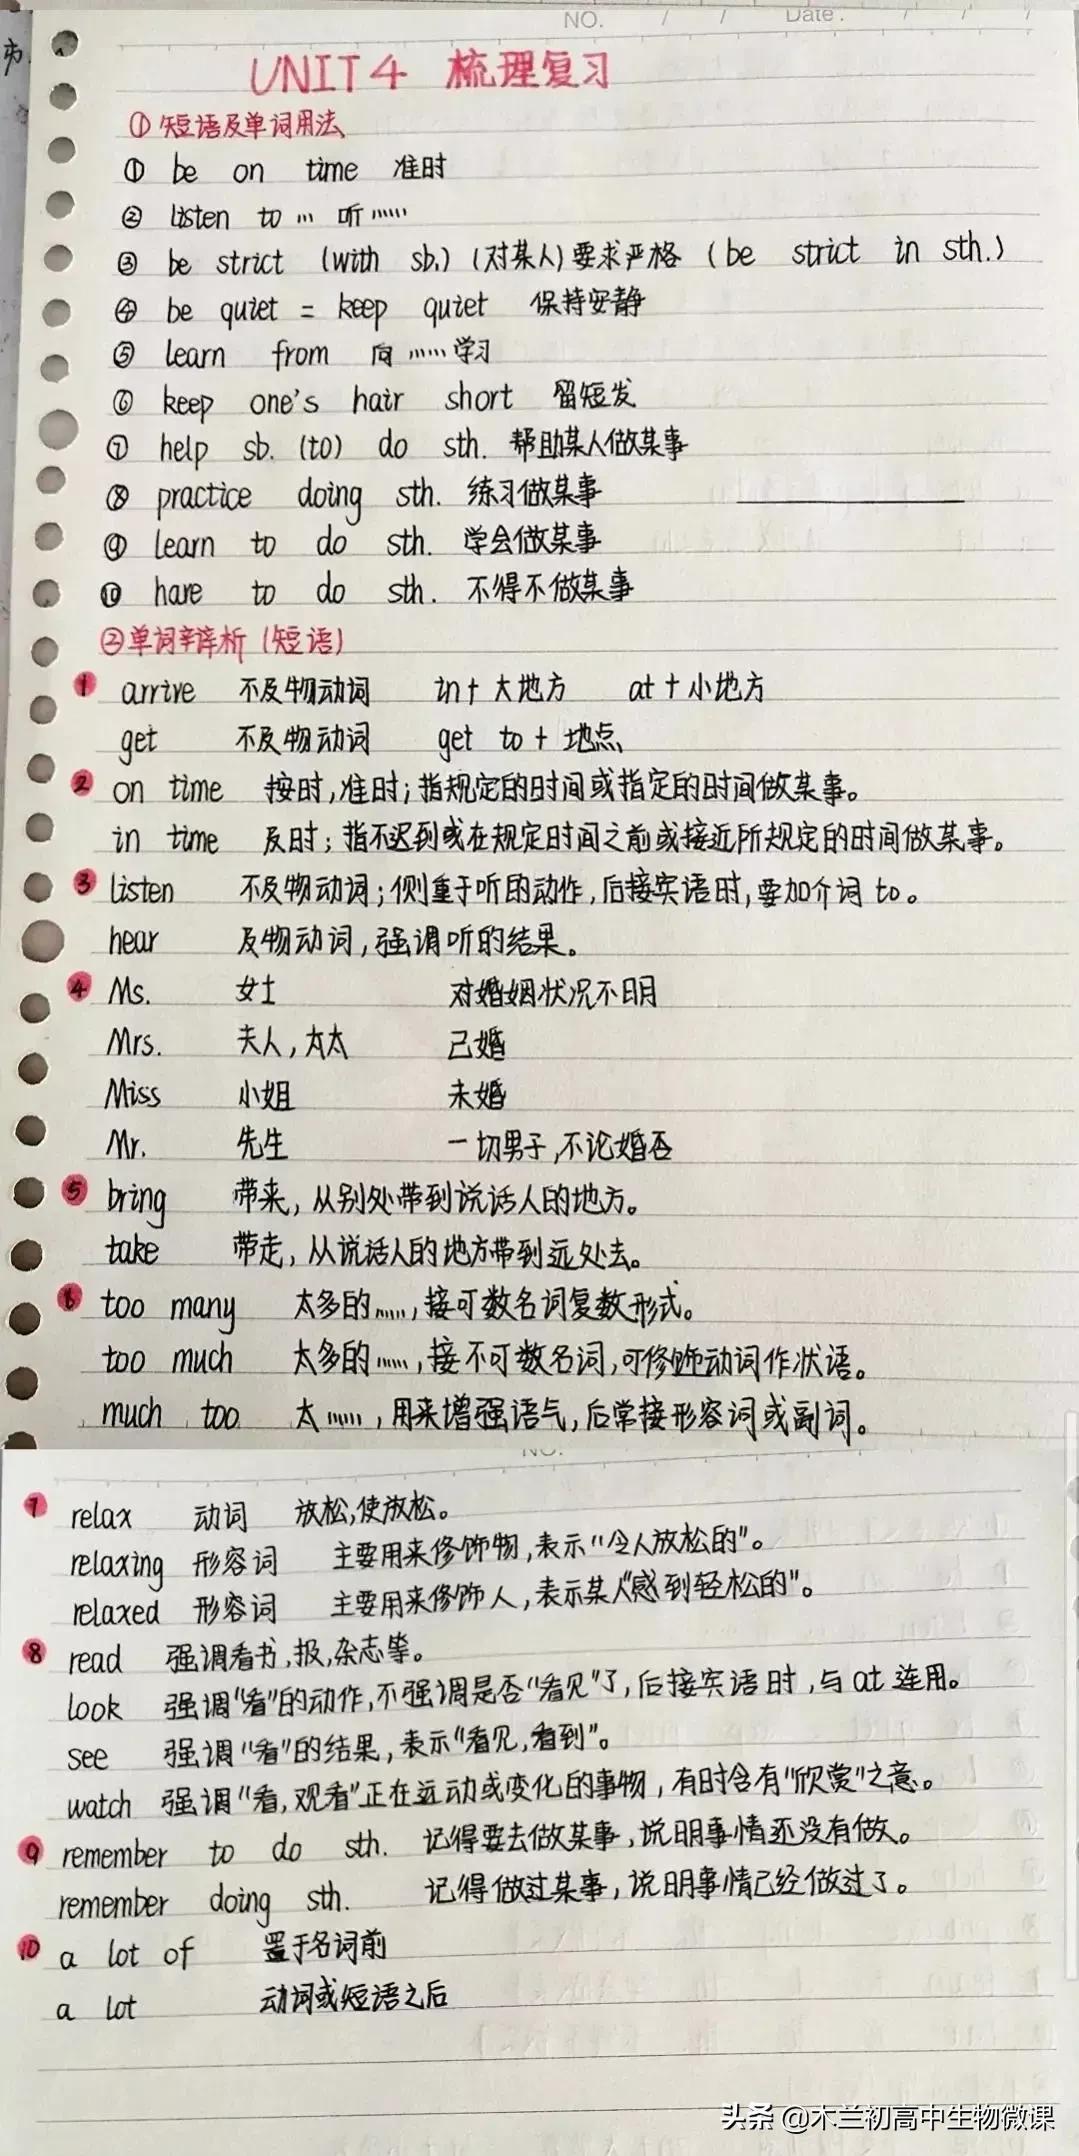 NO.    /    /    Date.    /    /    /
UNIT4 梳理复习
① 短语及单词用法
① be on time 准时
② listen to … 听……
③ be strict (with sb.) (对某人)要求严格 (be strict in sth.)
④ be quiet = keep quiet 保持安静
⑤ learn from 向……学习
⑥ keep one's hair short 留短发
⑦ help sb. (to) do sth. 帮助某人做某事
⑧ practice doing sth. 练习做某事
⑨ learn to do sth. 学会做某事
⑩ have to do sth. 不得不做某事
②单词辨析(短语)
1 arrive 不及物动词 in+大地方 at+小地方
get 不及物动词 get to + 地点
2 on time 按时,准时;指规定的时间或指定的时间做某事。
in time 及时;指不迟到或在规定时间之前或接近所规定的时间做某事。
3 listen 不及物动词;侧重于听的动作,后接宾语时,要加介词to。
hear 及物动词,强调听的结果。
4 Ms. 女士 对婚姻状况不明
Mrs. 夫人,太太 已婚
Miss 小姐 未婚
Mr. 先生 一切男子,不论婚否
5 bring 带来,从别处带到说话人的地方。
take 带走,从说话人的地方带到远处去。
6 too many 太多的……,接可数名词复数形式。
too much 太多的……,接不可数名词,可修饰动词作状语。
much too 太……,用来增强语气,后常接形容词或副词。
NO.
7 relax 动词 放松,使放松。
relaxing 形容词 主要用来修饰物,表示"令人放松的"。
relaxed 形容词 主要用来修饰人,表示某人"感到轻松的"。
8 read 强调看书,报,杂志等。
look 强调"看"的动作,不强调是否"看见"了,后接宾语时,与at连用。
see 强调"看"的结果,表示"看见,看到"。
watch 强调"看,观看"正在运动或变化的事物,有时含有"欣赏"之意。
9 remember to do sth. 记得要去做某事,说明事情还没有做。
remember doing sth. 记得做过某事,说明事情已经做过了。
10 a lot of 置于名词前
a lot 动词或短语之后
头条 @木兰初高中生物微课